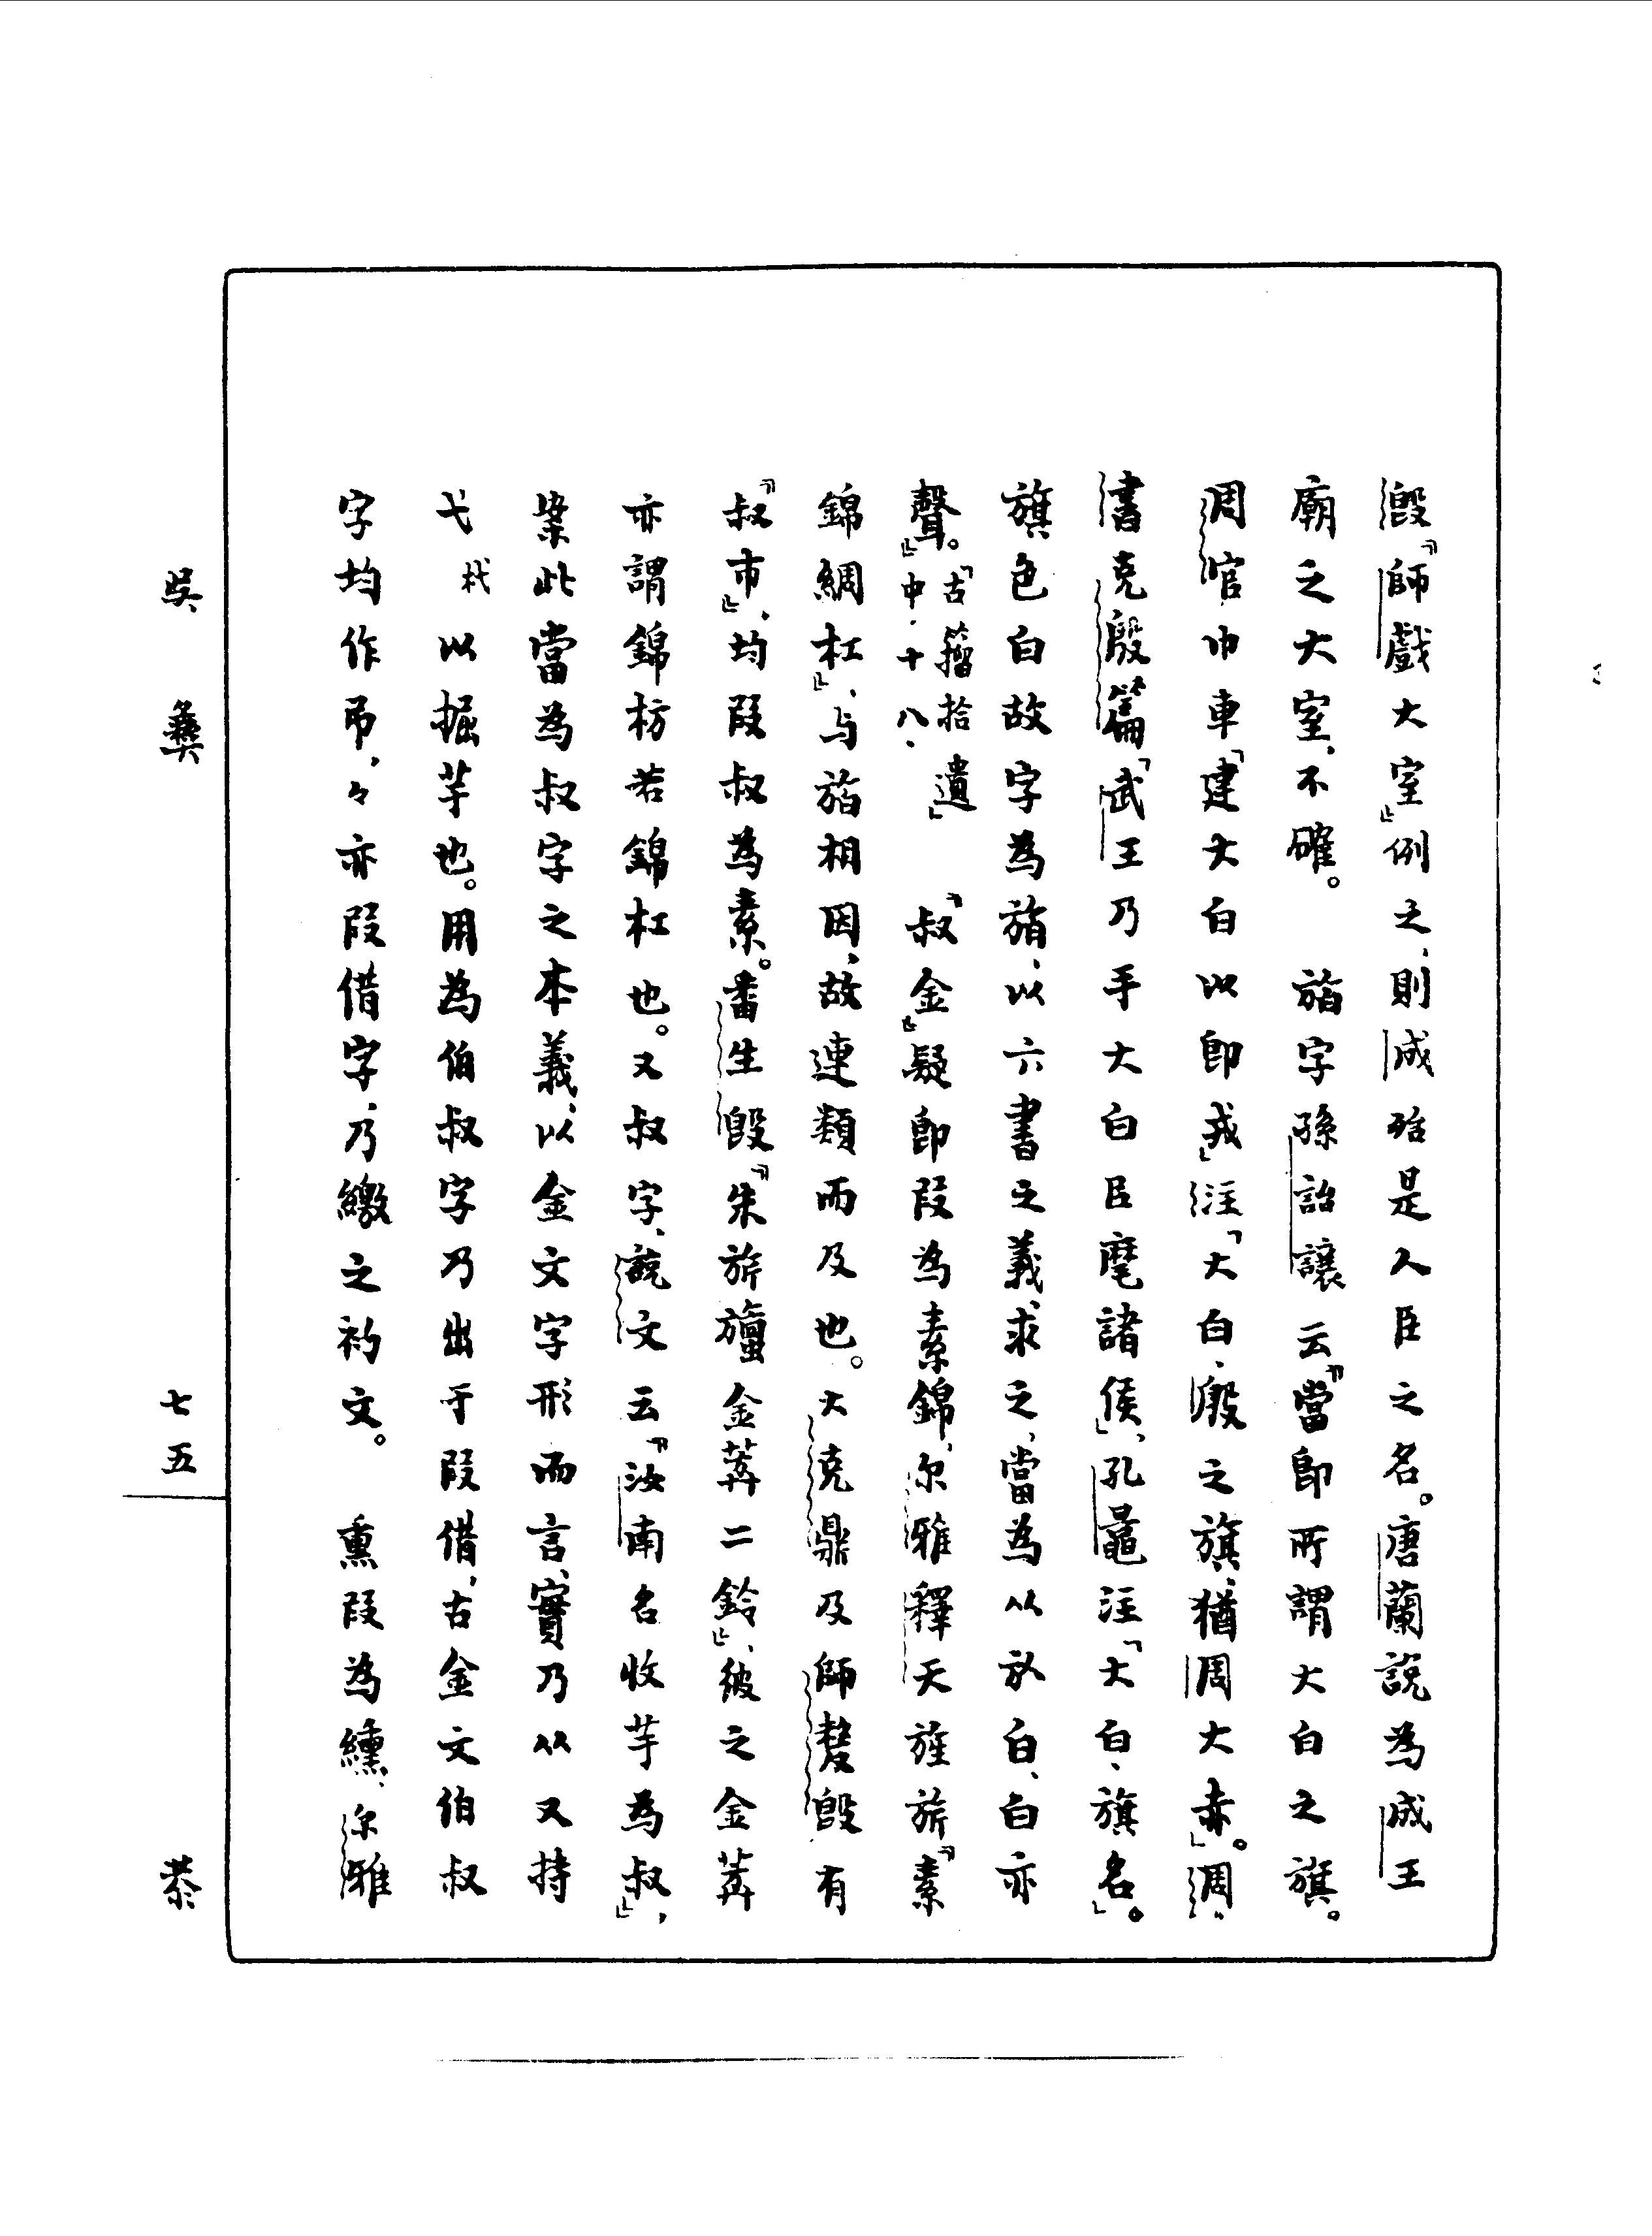 毁『師戲大室』例之，則成㱙是人臣之名。唐蘭說為成王
廟之大室，不確。　㫋字孫詒讓云『當即所謂大白之旗。
周官巾車「建大白以即戎」注「大白，殷之旗，猶周大赤」。周
書克殷篇「武王乃手大白臣麾諸侯」，孔鼂注「大白，旗名」。
旗色白故字為㫋，以六書之義求之，當為从㫃白，白亦
聲。』「古籀拾遺」中·十八、　『叔金』疑即叚為素錦，尔雅釋天旌旂『素
錦綢杠』，与㫋相因，故連類而及也。大克鼎及師𠩺𣪘有
『叔巿』，均叚叔為素。番生𣪘『朱旂旜金䒶二鈴』，彼之金䒶
亦謂錦枋若錦杠也。又叔字，說文云『汝南名收芋為叔』，
案此當為叔字之本義，以金文字形而言，實乃从又持
弋杙以掘芋也。用為伯叔字乃出于叚借，古金文伯叔
字均作弔，々亦叚借字，乃繳之初文。　熏叚為纁，尔雅
吳彝
七五
恭